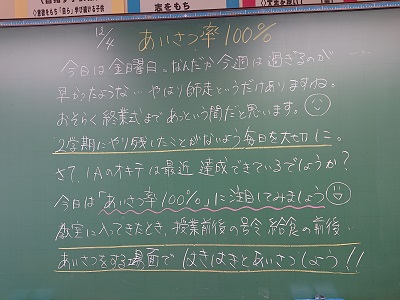 志をもち
◇意欲をもち「自ら」学び続ける子供
12/4 あいさつ率100%
今日は金曜日。なんだか今週は過ぎるのが
早かったような…やはり師走というだけありますね。
おそらく終業式まであっという間だと思います。
2学期にやり残したことがないよう毎日を大切に。
さて、1Aのオキテは最近達成できているでしょうか?
今日は「あいさつ率100%」に注目してみましょう
教室に入ってきたとき、授業前後の号令 給食の前後…
あいさつをする場面で はきはきとあいさつしよう!!